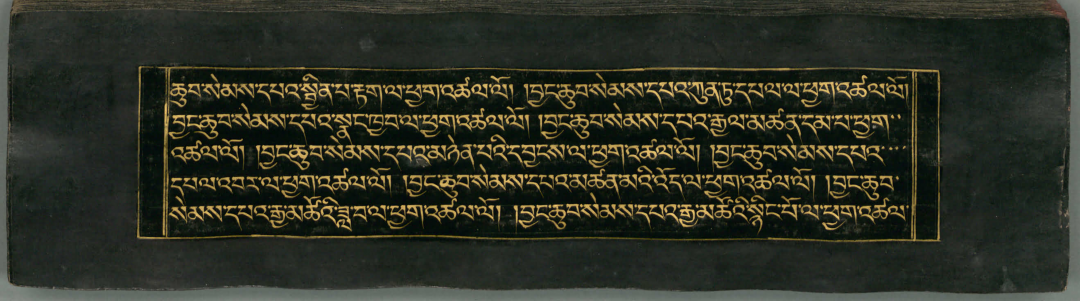 ཆུབ་སེམས་དཔའ་སྦྱིན་པ་རྟག་ལ་ཕྱག་འཚལ་ལོ། །བྱང་ཆུབ་སེམས་དཔའ་ཀུན་ཏུ་དཔལ་ལ་ཕྱག་འཚལ་ལོ།
བྱང་ཆུབ་སེམས་དཔའ་སྣང་ཁྱབ་ལ་ཕྱག་འཚལ་ལོ། །བྱང་ཆུབ་སེམས་དཔའ་རྒྱལ་མཚན་དམ་པ་ཕྱག་
འཚལ་ལོ། །བྱང་ཆུབ་སེམས་དཔའ་མཉེན་པའི་དབྱངས་ལ་ཕྱག་འཚལ་ལོ། །བྱང་ཆུབ་སེམས་དཔའ་
དཔལ་འབར་ལ་ཕྱག་འཚལ་ལོ། །བྱང་ཆུབ་སེམས་དཔའ་མཚན་མའི་འོད་ལ་ཕྱག་འཚལ་ལོ། །བྱང་ཆུབ་
སེམས་དཔའ་རྒྱ་མཚོའི་ཟླ་བ་ལ་ཕྱག་འཚལ་ལོ། །བྱང་ཆུབ་སེམས་དཔའ་རྒྱ་མཚོའི་སྙིང་པོ་ལ་ཕྱག་འཚལ་